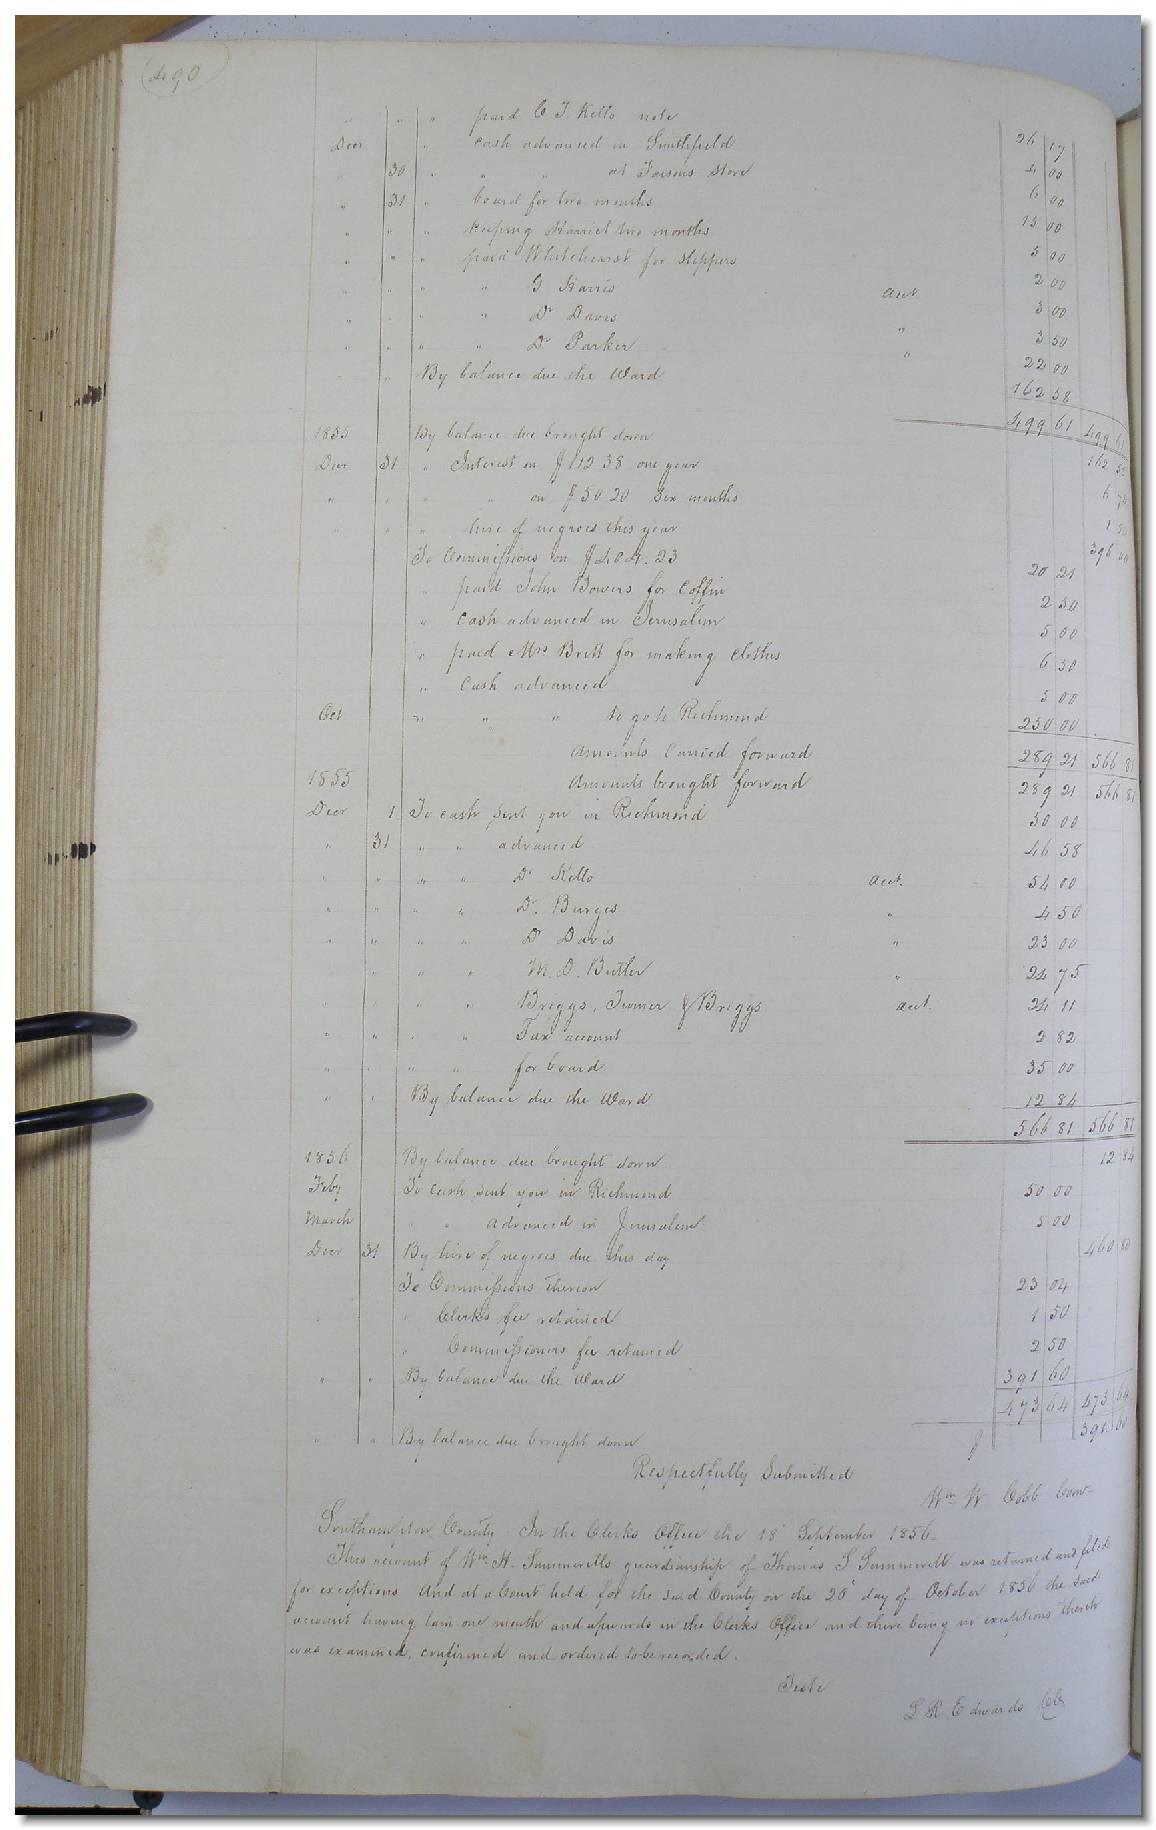 490
" " " paid C T. Kello note 26 17
Decr " Cash advanced in Smithfield 4 00
" 30 " " " at Faisons Store 6 00
" 31 " board for two months 15 00
" " " keeping Harriet two months 5 00
" " " paid Whitehearst for slippers 2 00
" " " " G Harris acct 3 00
" " " " Dr Davis " 3 50
" " " " Dr Parker " 22 00
" " By balance due the Ward 162 58
499 61 499 61
1855 By balance due brought down 162 58
Decr 31 " Interest on $112 38 one year 6 74
" " " " on $50 20 six months 1 50
" " " hire of negroes this year 396 00
To Commissions on $404.23 20 21
" paid John Bowers for Coffin 2 50
" Cash advanced in Jerusalem 5 00
" paid Mrs Britt for making clothes 6 50
" Cash advanced 5 00
Oct " " " to go to Richmond 250 00
Amounts Carried forward 289 21 566 81
1855 Amounts brought forward 289 21 566 81
Decr 1 To cash sent you in Richmond 50 00
" 31 " " advanced 46 58
" " " " Dr Kello acct. 54 00
" " " " Dr. Burges " 4 50
" " " " Dr Davis " 23 00
" " " " M. D. Butler " 24 75
" " " " Briggs, Turner & Briggs acct. 24 11
" " " " Tax account 2 82
" " " " for board 35 00
" " By balance due the Ward 12 84
566 81 566 81
1856 By balance due brought down 12 84
Feby To cash sent you in Richmond 50 00
March " " advanced in Jerusalem 5 00
Decr 31 By hire of negroes due this day 460 80
To Commissions thereon 23 04
" " Clerks fee retained 1 50
" Commissioners fee retained 2 50
" " By balance due the Ward 391 60
473 64 473 64
" " By balance due brought down $ 391 60
Respectfully Submitted
Wm W Cobb Com
Southampton County In the Clerks Office the 18 September 1856
This account of Wm H. Summerells guardianship of Thomas S Summerell was returned and filed
for exceptions And at a Court held for the said County on the 20 day of October 1856 the said
account having lain one month and upwards in the Clerks Office and there being no exceptions thereto
was examined, confirmed and ordered to be recorded.
Teste
L R Edwards Clk